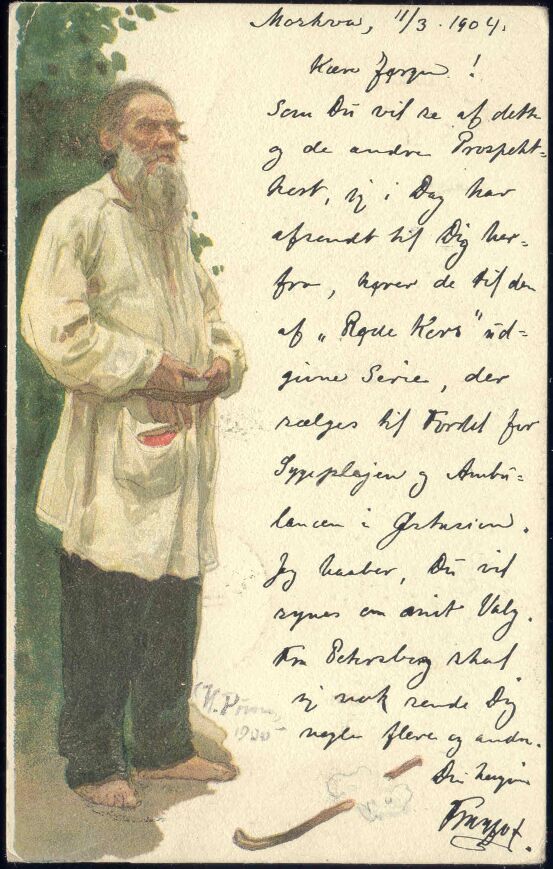 Moskva, 11/3. 1904.
Kære Jørgen!
Som Du vil se af dette
og de andre Prospekt-
kort, jeg i Dag har
afsendt til Dig her-
fra, hører de til den
af „Røde Kors" ud-
givne Serie, der
sælges til Fordel for
Sygeplejen og Ambu-
lancen i Østasien.
Jeg haaber, Du vil
synes om mit Valg.
Fra Petersborg skal
jeg nok sende Dig
nogle flere og andre.
Din
1900